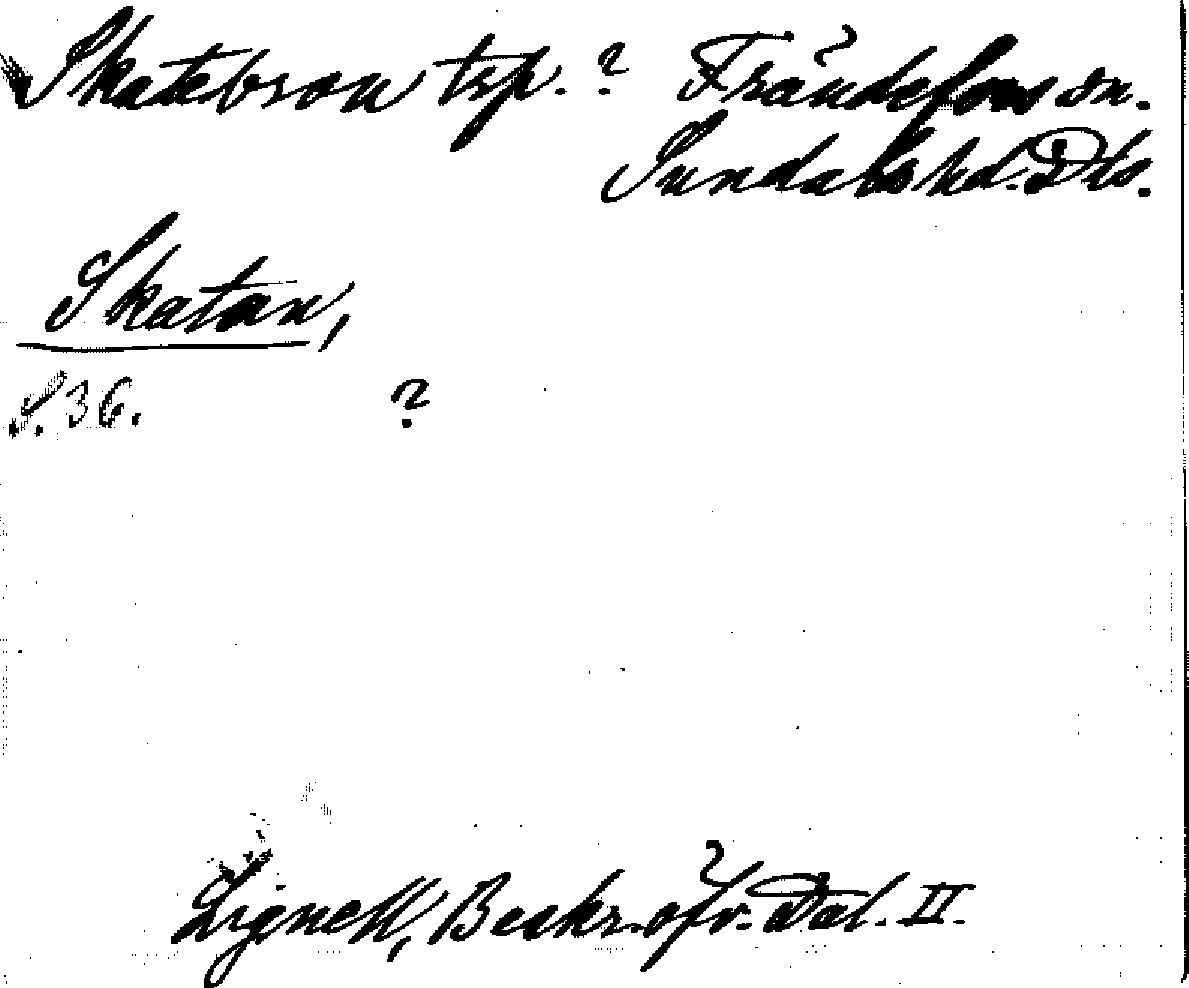 Skatebron trp. ? Frändefors sn.
Sundals hd. Dls.
Skatan,
S. 36. ?
Lignell, Beskr. öfv. Dal. II.